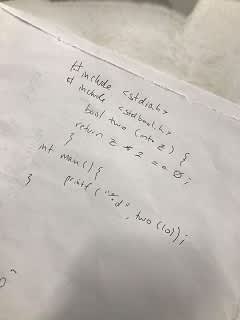 #include <stdio.h>
# include <stdbool.h>
bool two (int z) {
return z % 2 == 0;
}
int main() {
printf ("%d", two (10));
}